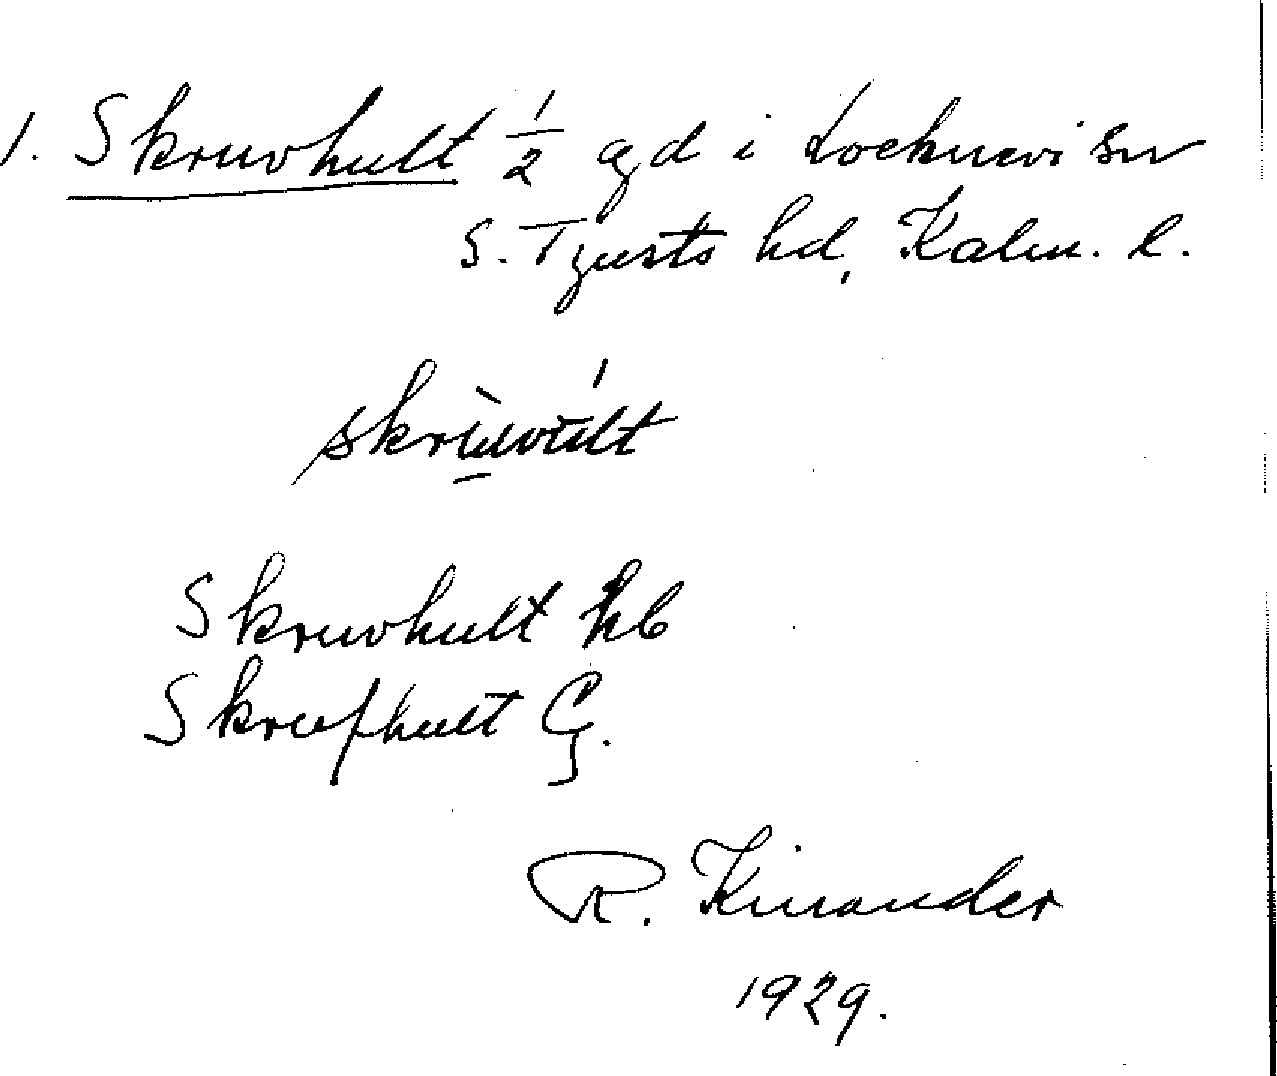 1. Skruvhult 1/2 gd i Locknevi sn
S. Tjusts hd, Kalm. l.
skrùvúlt
Skruvhult hb
Skrufhult G.
R. Kinander
1929.